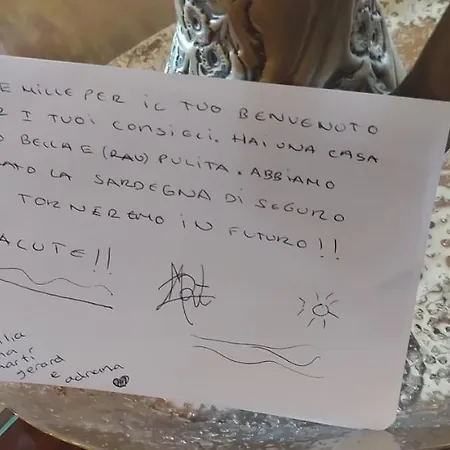 E MILLE PER IL TUO BENVENUTO
I TUOI CONSIGLI. HAI UNA CASA
BELLA E (RAU) PULITA. ABBIAMO
LA SARDEGNA DI SEGURO
TORNEREMO IN FUTURO!!
ALUTE!!
gerard
e adriana